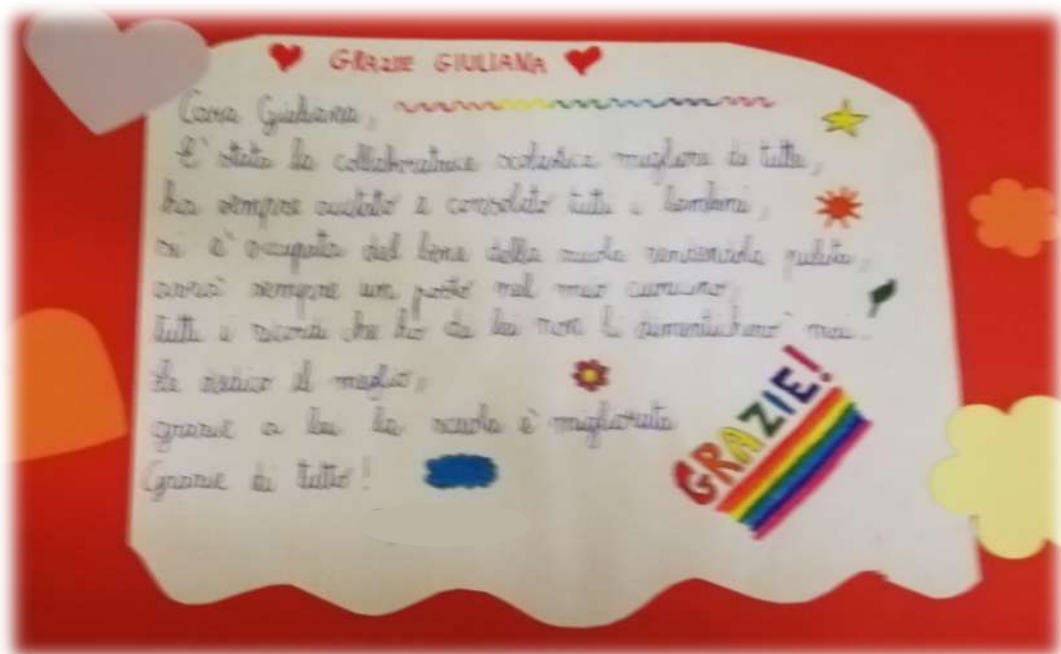 GRAZIE GIULIANA
Cara Giuliana,
E' stata la collaboratrice scolastica migliore di tutte,
ha sempre aiutato e consolato tutti i bambini,
si è occupata del bene della scuola rendendola pulita,
avrà sempre un posto nel mio cuoricino,
tutti i ricordi che ho di lei non li dimenticherò mai.
Le auguro il meglio,
grazie a lei la scuola è migliorata
Grazie di tutto!
GRAZIE!